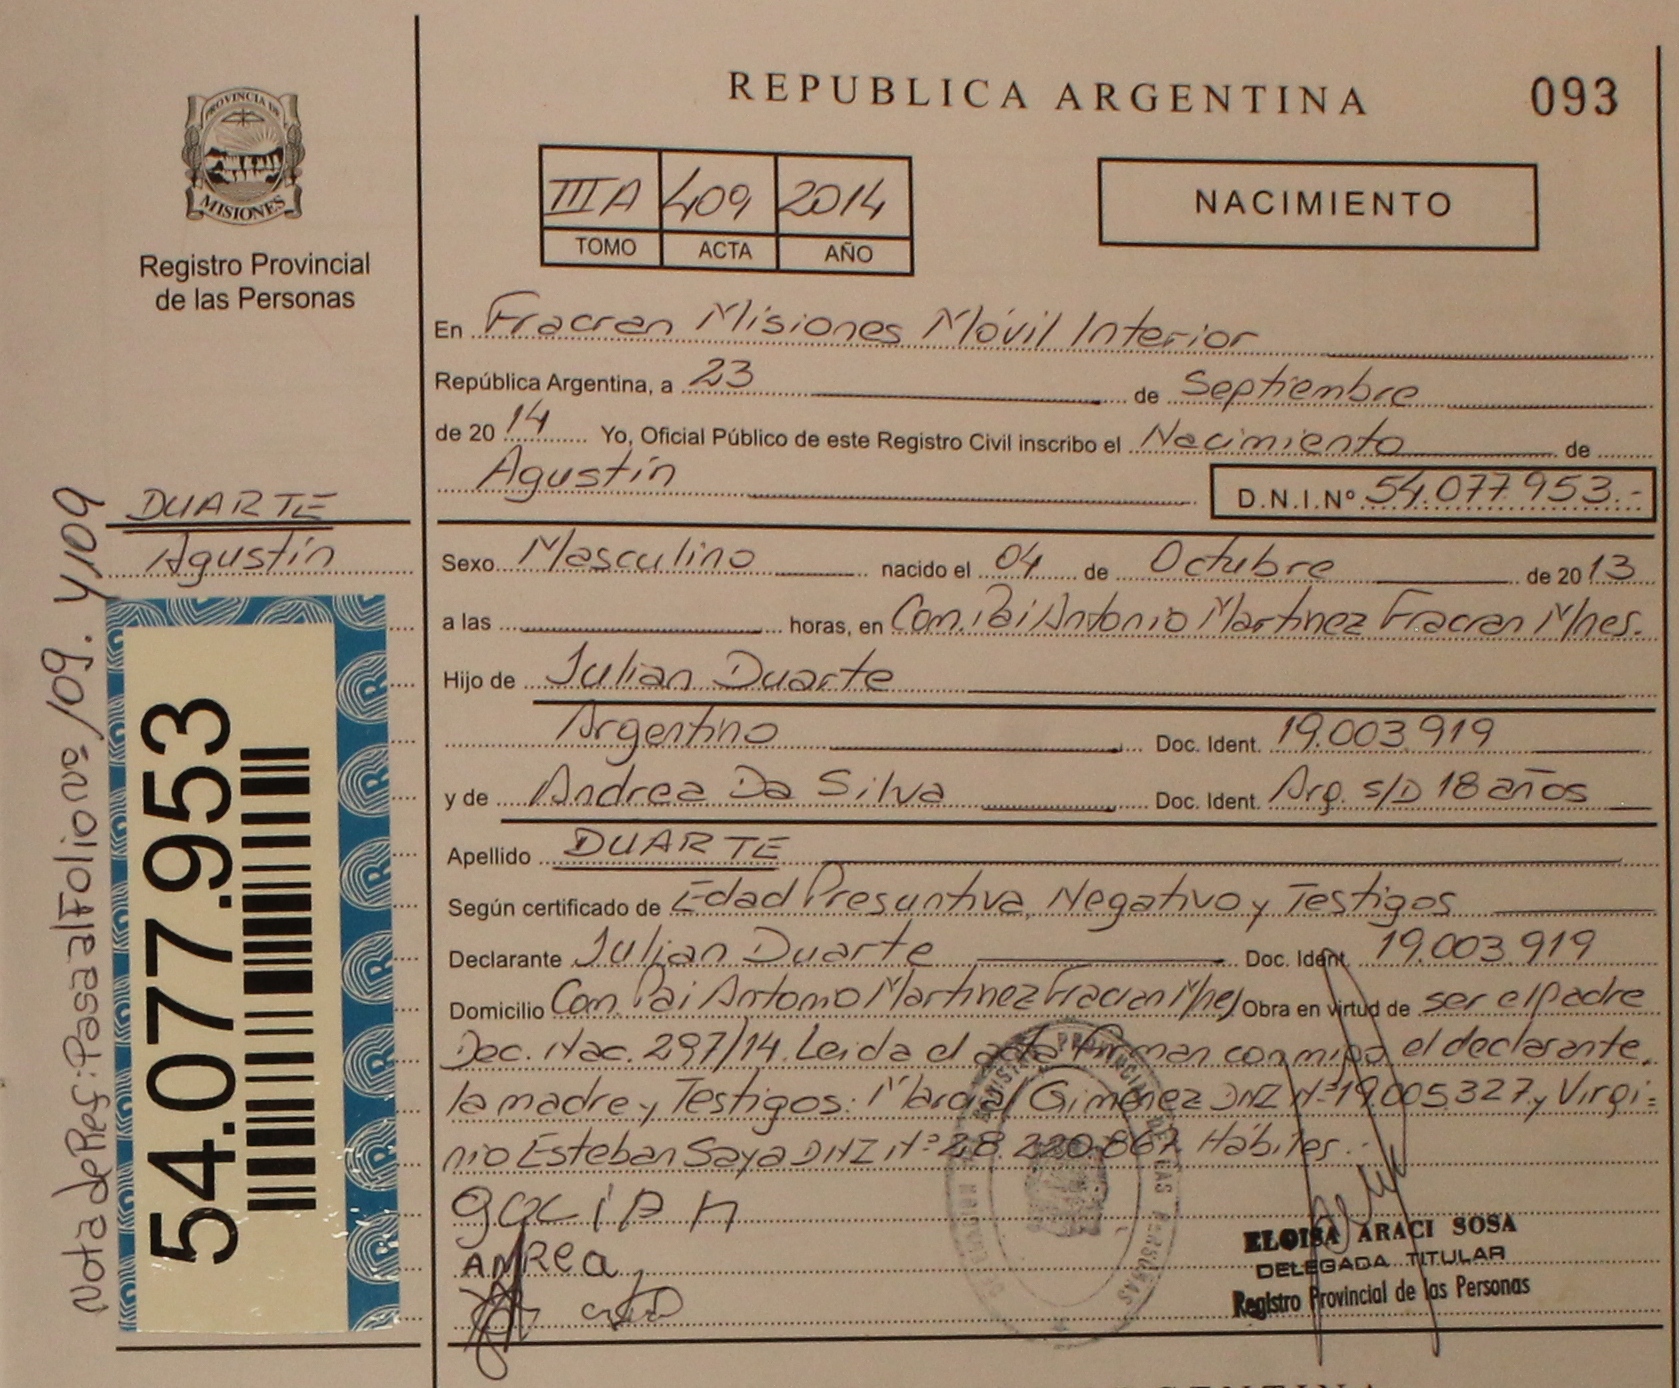 REPUBLICA ARGENTINA
093
PROVINCIA DE
MISIONES
Registro Provincial
de las Personas
III A 409 2014
TOMO ACTA AÑO
NACIMIENTO
En Fracran Misiones Móvil Interior
República Argentina, a 23 de Septiembre
de 20 14 Yo, Oficial Público de este Registro Civil inscribo el Nacimiento de
Agustín D.N.I.Nº 54.077.953.-
DUARTE
Agustín
Sexo Masculino nacido el 04 de Octubre de 20 13
a las horas, en Com. Pai Antonio Martinez Fracran Mnes.
Hijo de Julian Duarte
Argentino Doc. Ident. 19.003.919
y de Andrea Da Silva Doc. Ident. Arg. s/D 18 años
Apellido DUARTE
Según certificado de Edad Presuntiva, Negativo y Testigos
Declarante Julian Duarte Doc. Ident. 19.003.919
Domicilio Com. Pai Antonio Martinez Fracran Mnes Obra en virtud de ser el padre
Dec. Nac. 297/14. Leida el acta firman conmigo el declarante,
la madre y Testigos: Marcial Giménez DNI Nº 19.005.327 y Virgi=
nio Esteban Saya DNI Nº 28.220.867 Hábiles.-
ELOISA ARACI SOSA
DELEGADA TITULAR
Registro Provincial de las Personas
Nota de Ref: Pasa al Folio nº /09. y 109
54.077.953